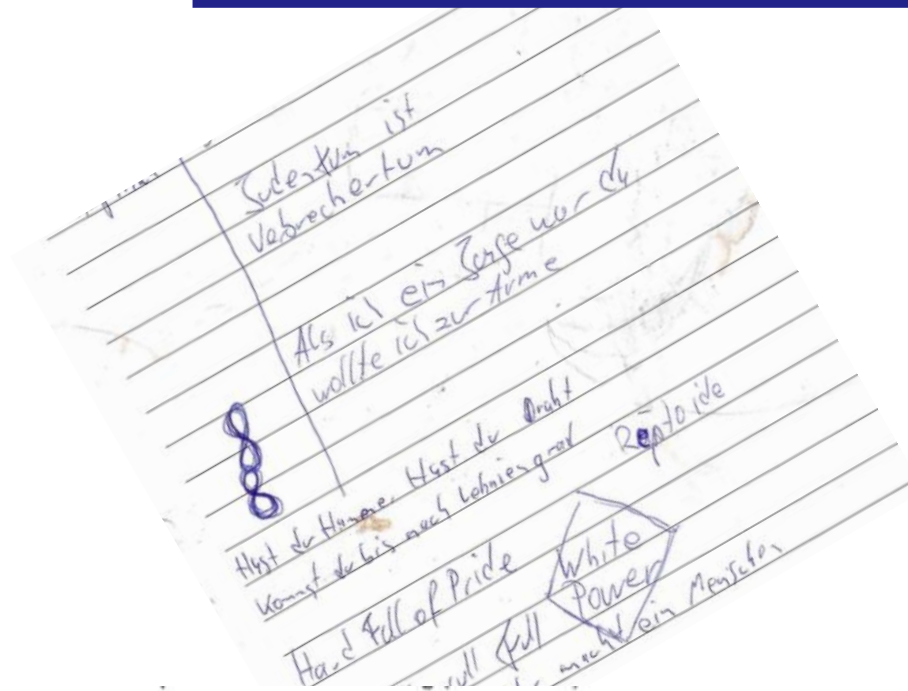 Judentum ist
Vebrechertum
Als ich ein war du
wollte ich zur Arme
Hast du Hast du Draht
kommst du bis nach
Reptoide
Hand Full of Pride
White
Power
full
macht ein Menschen